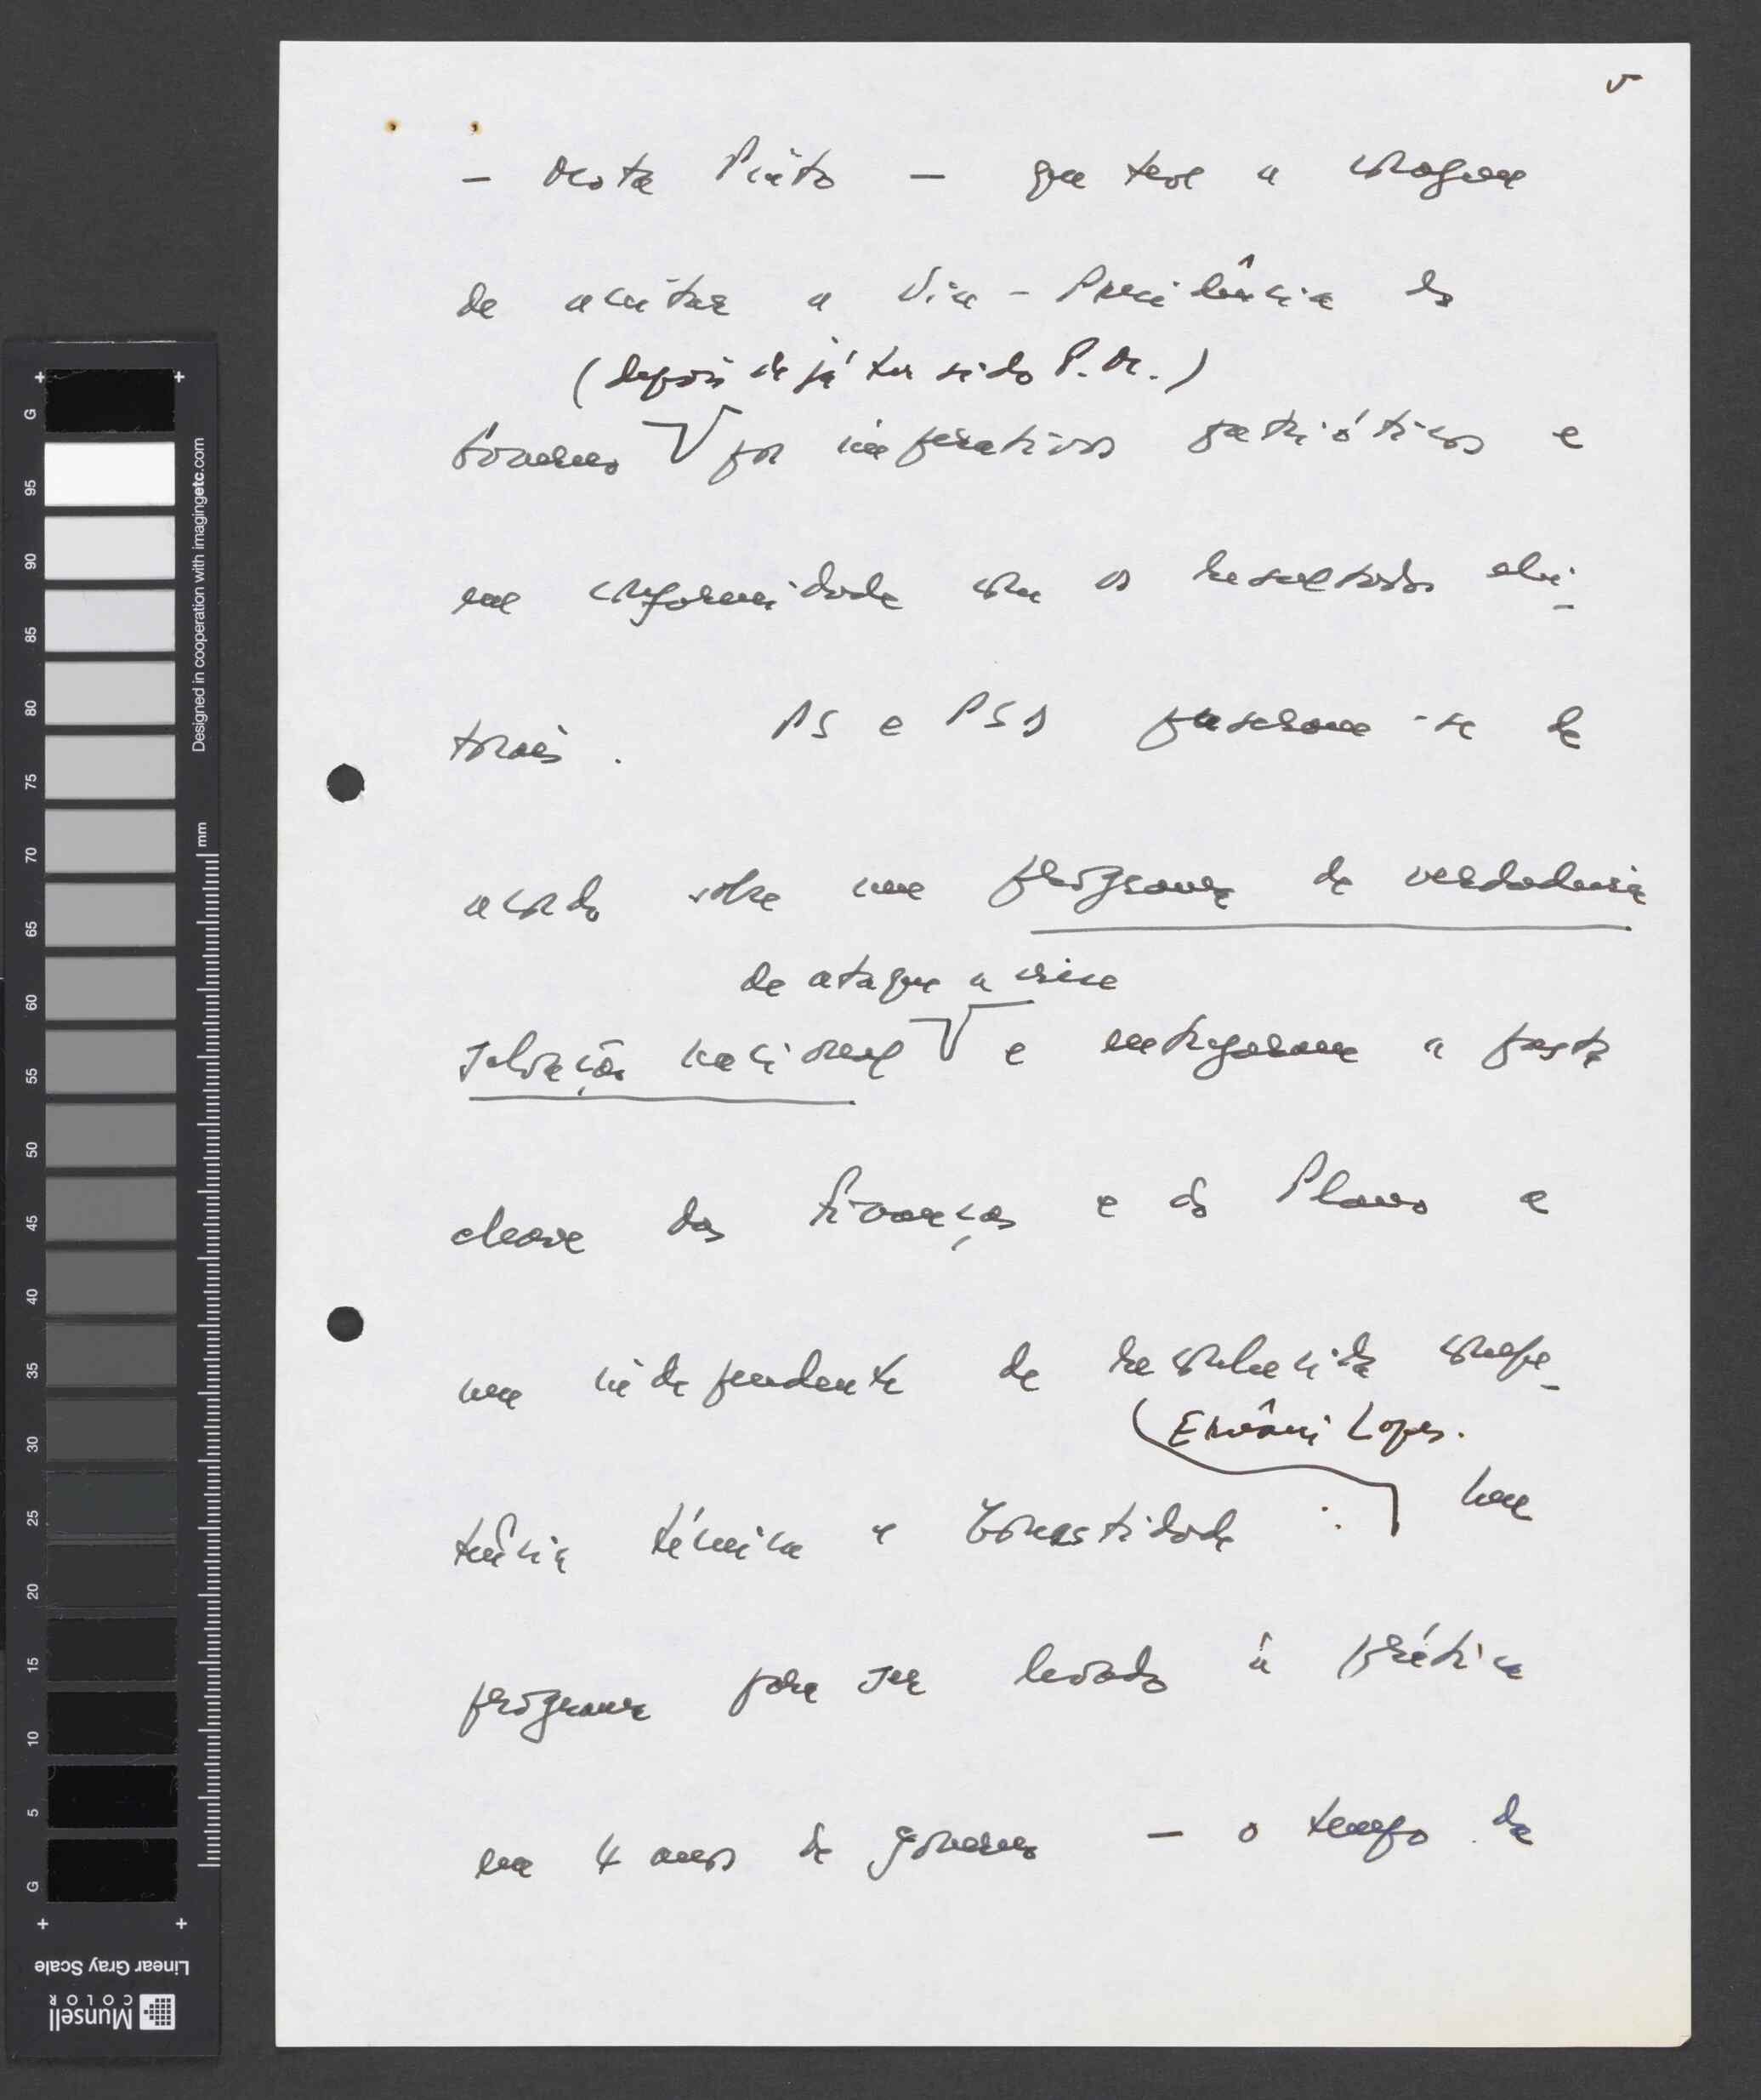 5
- Mota Pinto - que teve a coragem
de aceitar a Vice-Presidência do
(depois de já ter sido P.M.)
Governo V por imperativos patrióticos e
em conformidade com os resultados elei-
torais. PS e PSD puseram-se de
acordo sobre um programa de verdadeira
de ataque a crise
salvação nacional V e entregaram a pasta
chave das Finanças e do Plano a
um independente de reconhecida compe-
(Ernâni Lopes.
tência técnica e honestidade : Um
programa para ser levado à prática
em 4 anos de governo - o tempo de
G
95
90
85
80
75
70
65
60
55
50
45
40
35
30
25
20
15
10
5
G
mm
Designed in cooperation with imagingetc.com
Linear Gray Scale
Munsell
COLOR